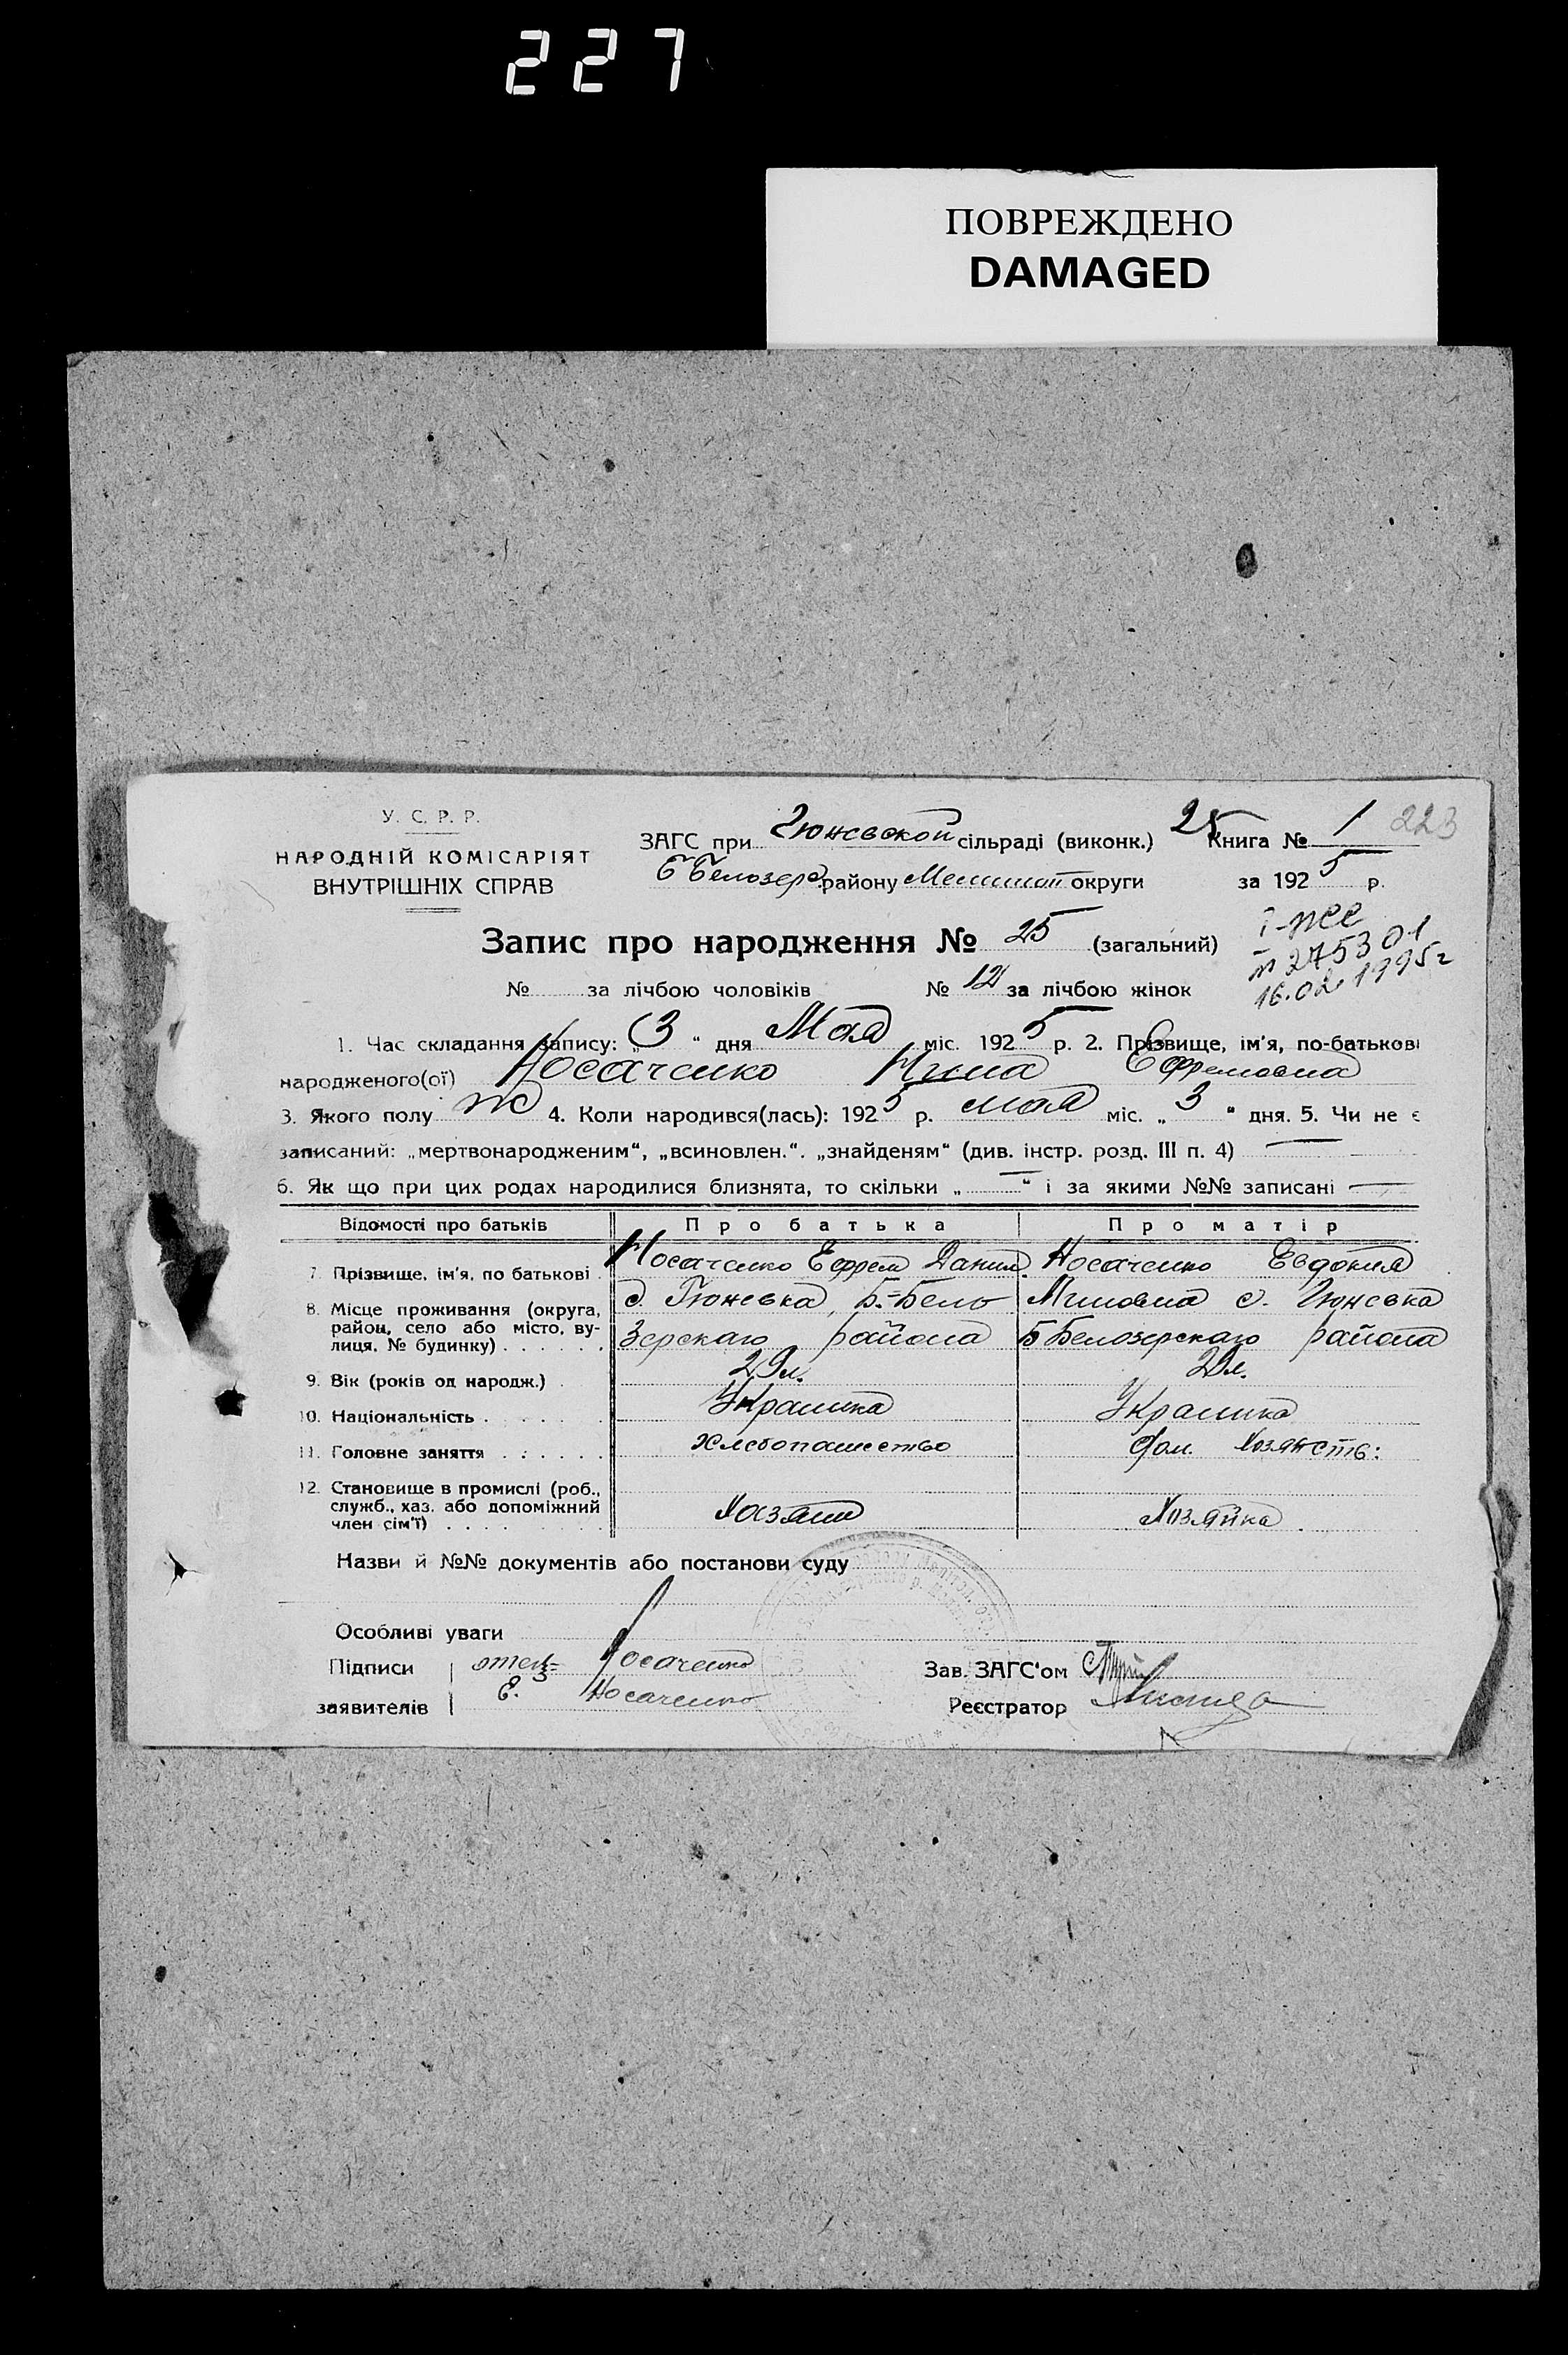 227
ПОВРЕЖДЕНО
DAMAGED
У. С. Р. Р.
НАРОДНІЙ КОМІСАРІЯТ
ВНУТРІШНІХ СПРАВ
ЗАГС при Гюневской сільраді (виконк.) 25 Книга № 1 223
Б Белозерс. району округи за 1925 р.
Запис про народження № 25 (загальний)
№ 275301
16.02.1995г
№ за лічбою чоловіків № 12 за лічбою жінок
1. Час складання запису: „3“ дня Мая міс. 1925 р. 2. Прізвище, ім'я, по-батькові
народженого(ої) Носаченко Нина Ефремовна
3. Якого полу ж 4. Коли народився(лась): 1925 р. мая міс. „3“ дня. 5. Чи не є
записаний: „мертвонародженим“, „всиновлен.“. „знайденям“ (див. інстр. розд. III п. 4)
6. Як що при цих родах народилися близнята, то скільки „—“ і за якими №№ записані —
Відомості про батьків Про батька Про матір
7. Прізвище, ім'я, по батькові . Носаченко Ефрем Данил. Носаченко Евдокия
8. Місце проживання (округа, район, село або місто, вулиця, № будинку) . . . . . . с. Гюневка, Б.-Бело Миновна с. Гюневка
Зерскаго района Б Белозерскаго района
9. Вік (років од народж.) . 29 л. 29 л.
10. Національність . . . . . . Украинка Украинка
11. Головне заняття . . . . . . Хлебопашество Дом. Хозяйств:
12. Становище в промислі (роб., служб., хаз. або допоміжний член сім'ї) . . . . Хозяин Хозяйка
Назви й №№ документів або постанови суду
Особливі уваги
Підписи отец Носаченко Зав. ЗАГС'ом
заявителів Е. Носаченко Реєстратор